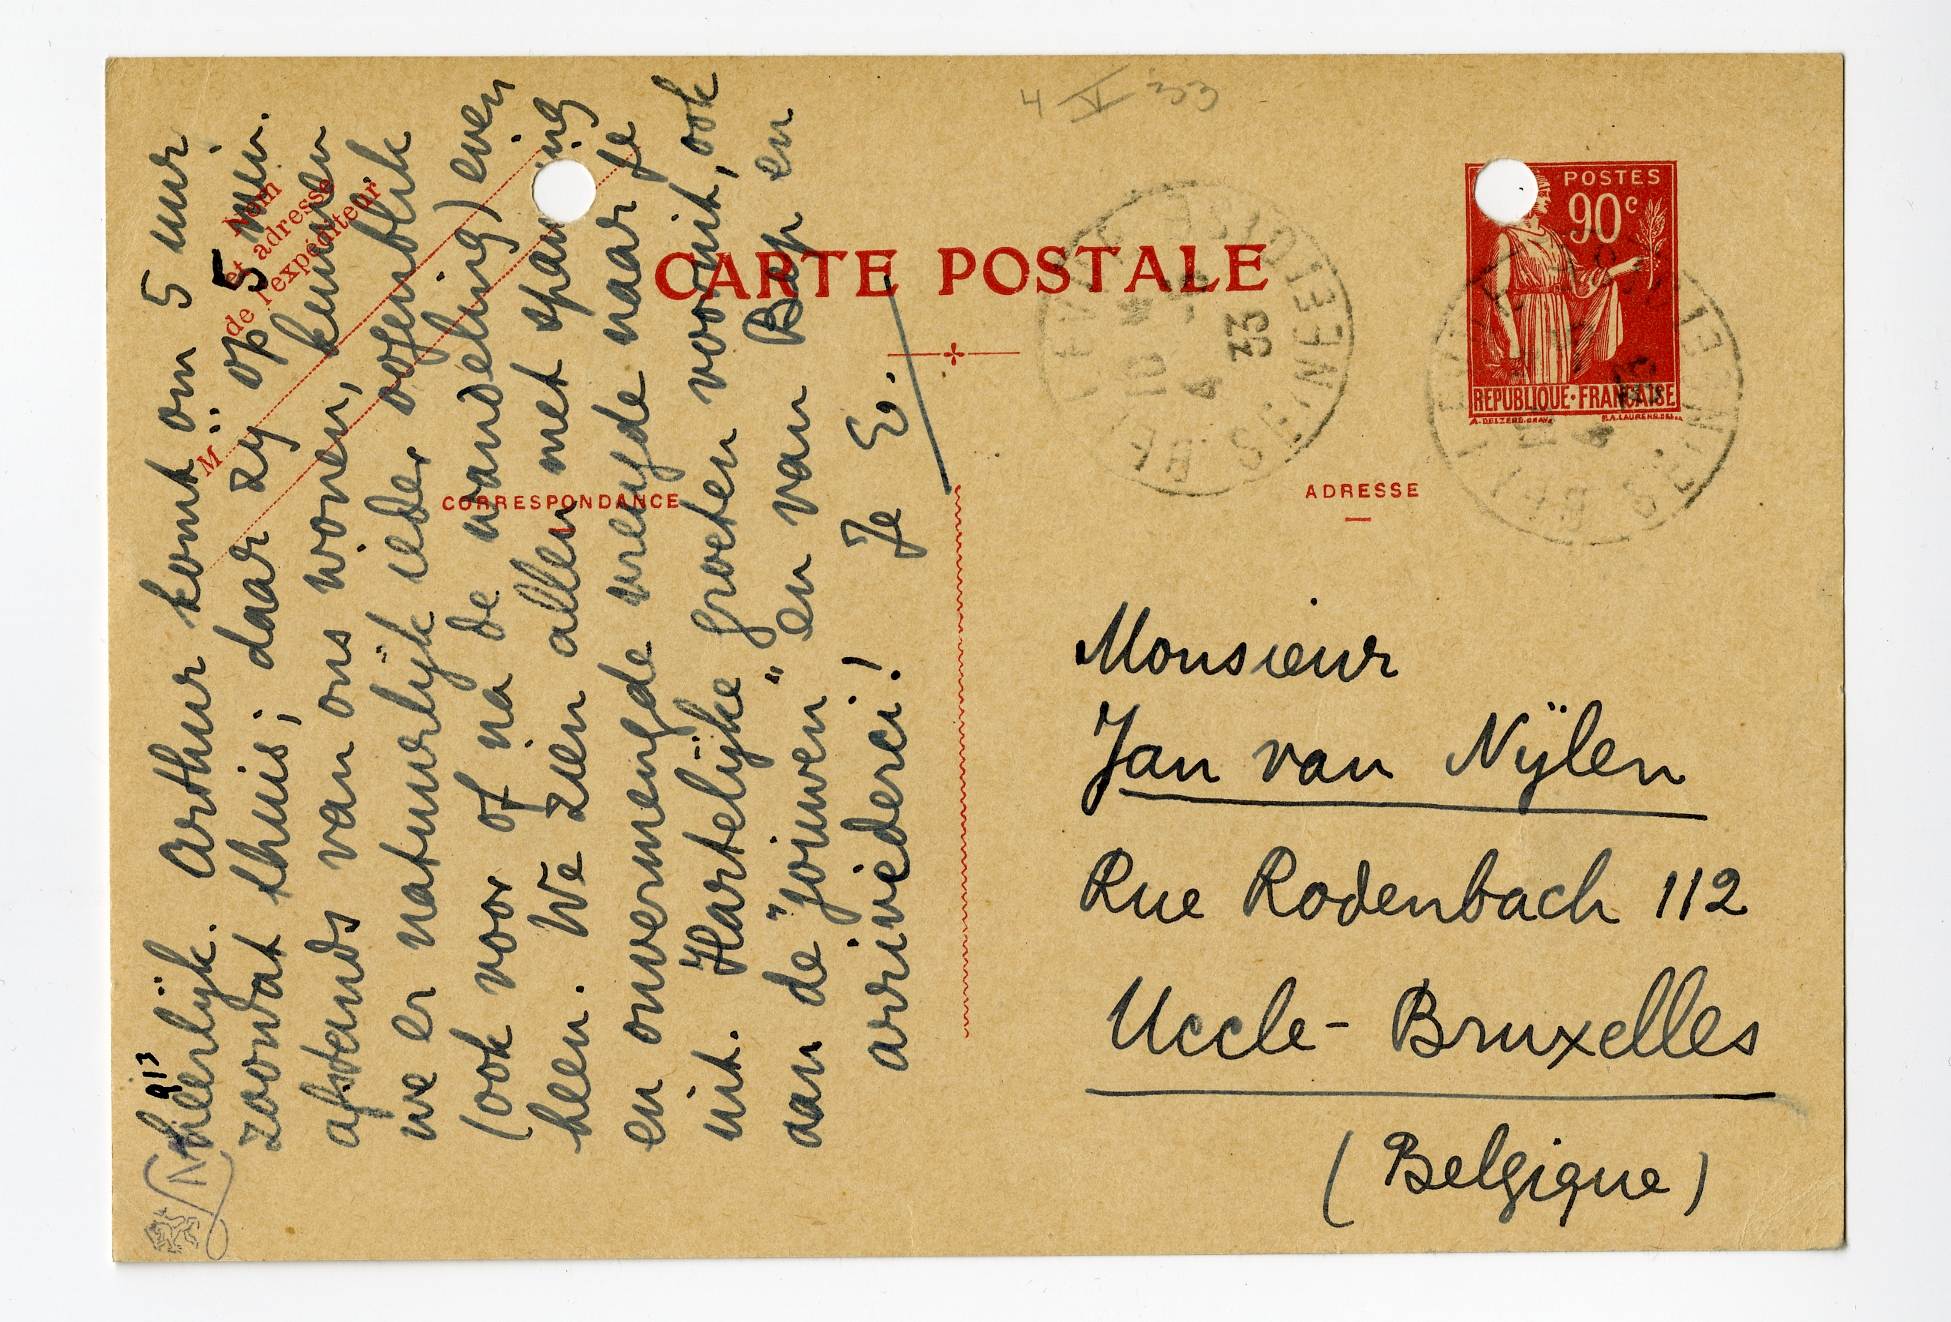 4 V 33
Nom
et adresse
de l'expéditeur
M
CARTE POSTALE
CORRESPONDANCE
ADRESSE
POSTES
90c
REPUBLIQUE·FRANÇAISE
BELLEVUE
SEINE ET OISE
4 -5
33
heerlijk. Arthur komt om 5 uur
zoodat thuis; daar zy op 5 min.
afstands van ons wonen, kunnen
we er natuurlijk ieder oogenblik
(ook voor of na de wandeling) even
heen. We zien allen met spanning
en onvermengde vreugde naar je
uit. Hartelijke groeten vooruit, ook
aan de "jouwen" en van Bep en
arrivederci! Je E.
Monsieur
Jan van Nijlen
Rue Rodenbach 112
Uccle - Bruxelles
(Belgique)